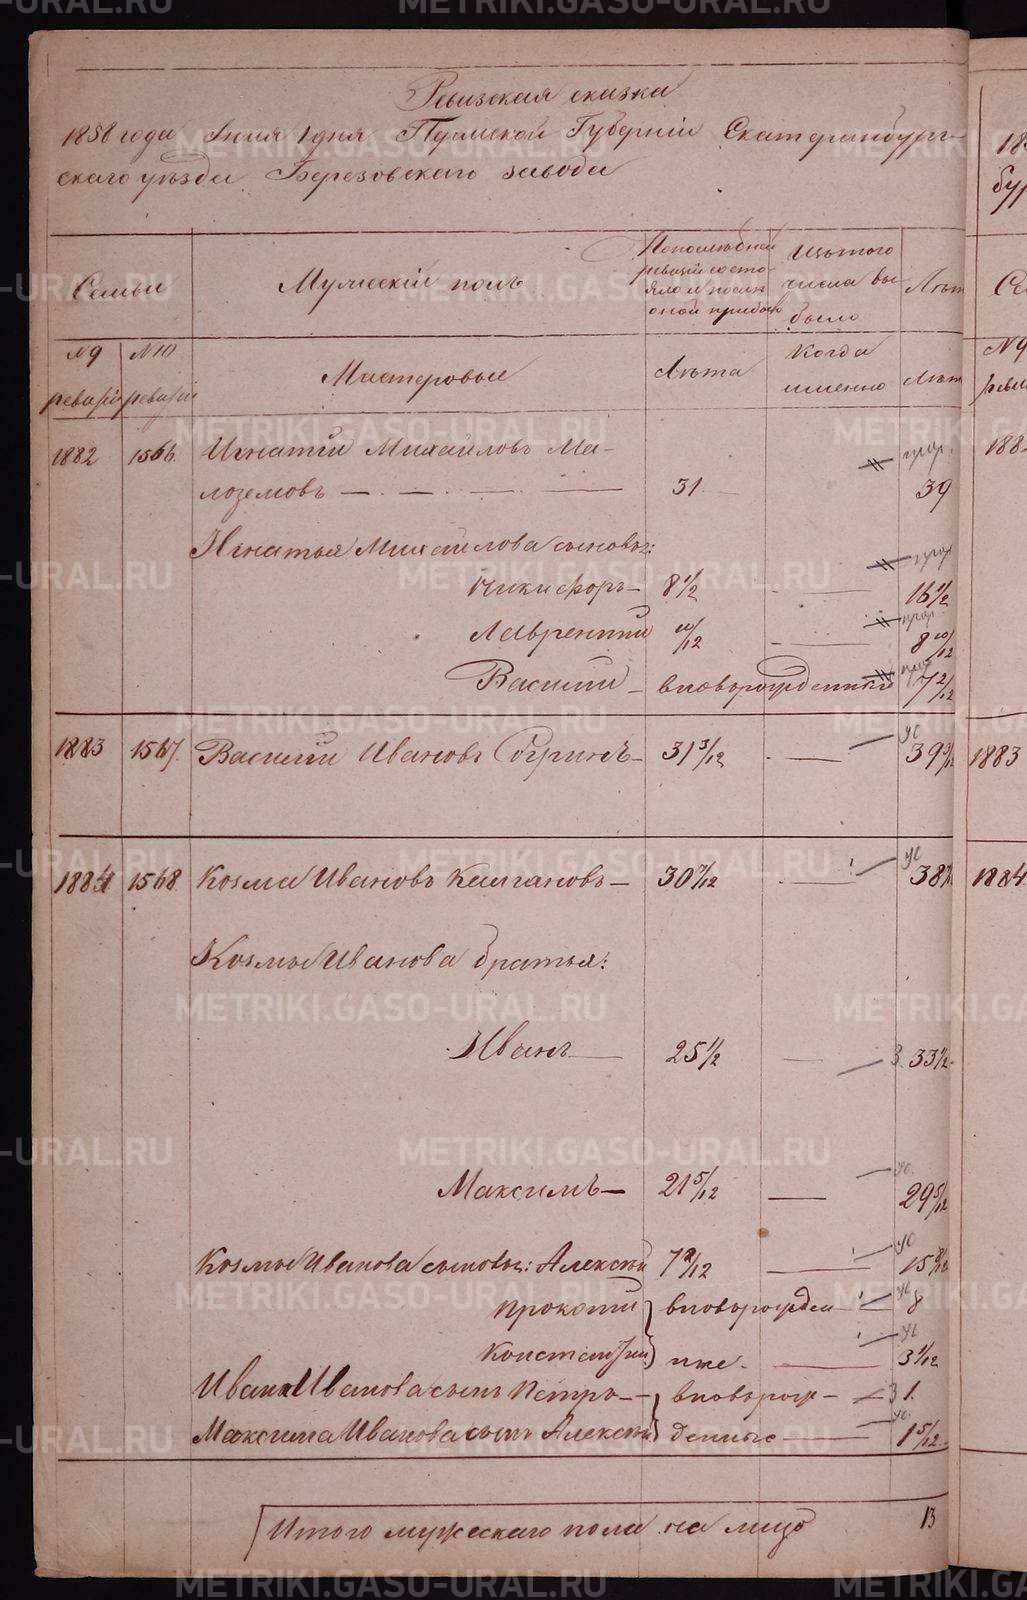 Ревизская сказка
1858 года Июня 1 дня Пермской Губерніи Екатеринбург-
скаго уѣзда Березовскаго завода
Семьи
Мужескій полъ
По послѣдней
ревизіи состо-
яло и послѣ
оной прибыло
Изъ того
числа вы-
было
Лѣт
№ 9
ревизіи
№ 10
ревизіи
Мастеровые
Лѣта
Когда
именно
Лѣт
1882 1566. Игнатій Михайловъ Ма-
лоземовъ 31 39
Игнатья Михайлова сыновья:
Никифоръ 8 1/2 16 1/2
Лаврентій 10/12 8 10/12
Василій новорожденный 7 2/12
1883 1567. Василій Ивановъ 31 3/12 39 3/12 1883
1884 1568 Козма Ивановъ Калгановъ 30 7/12 ус 38 1884
Козмы Иванова братья:
Иванъ 25 1/2 3. 33 1/2
Максимъ 21 5/12 ус. 29 5/12
Козмы Иванова сыновья: Алексѣй 7 8/12 ус 15 8/12
Прокопій новорожден 8
Константинъ ные 3 1/12
Ивана Иванова сынъ Петръ новорож- 3 1.
Максима Иванова сынъ Алексѣй денные 1 5/12
Итого мужескаго пола на лицо 13
METRIKI.GASO-URAL.RU